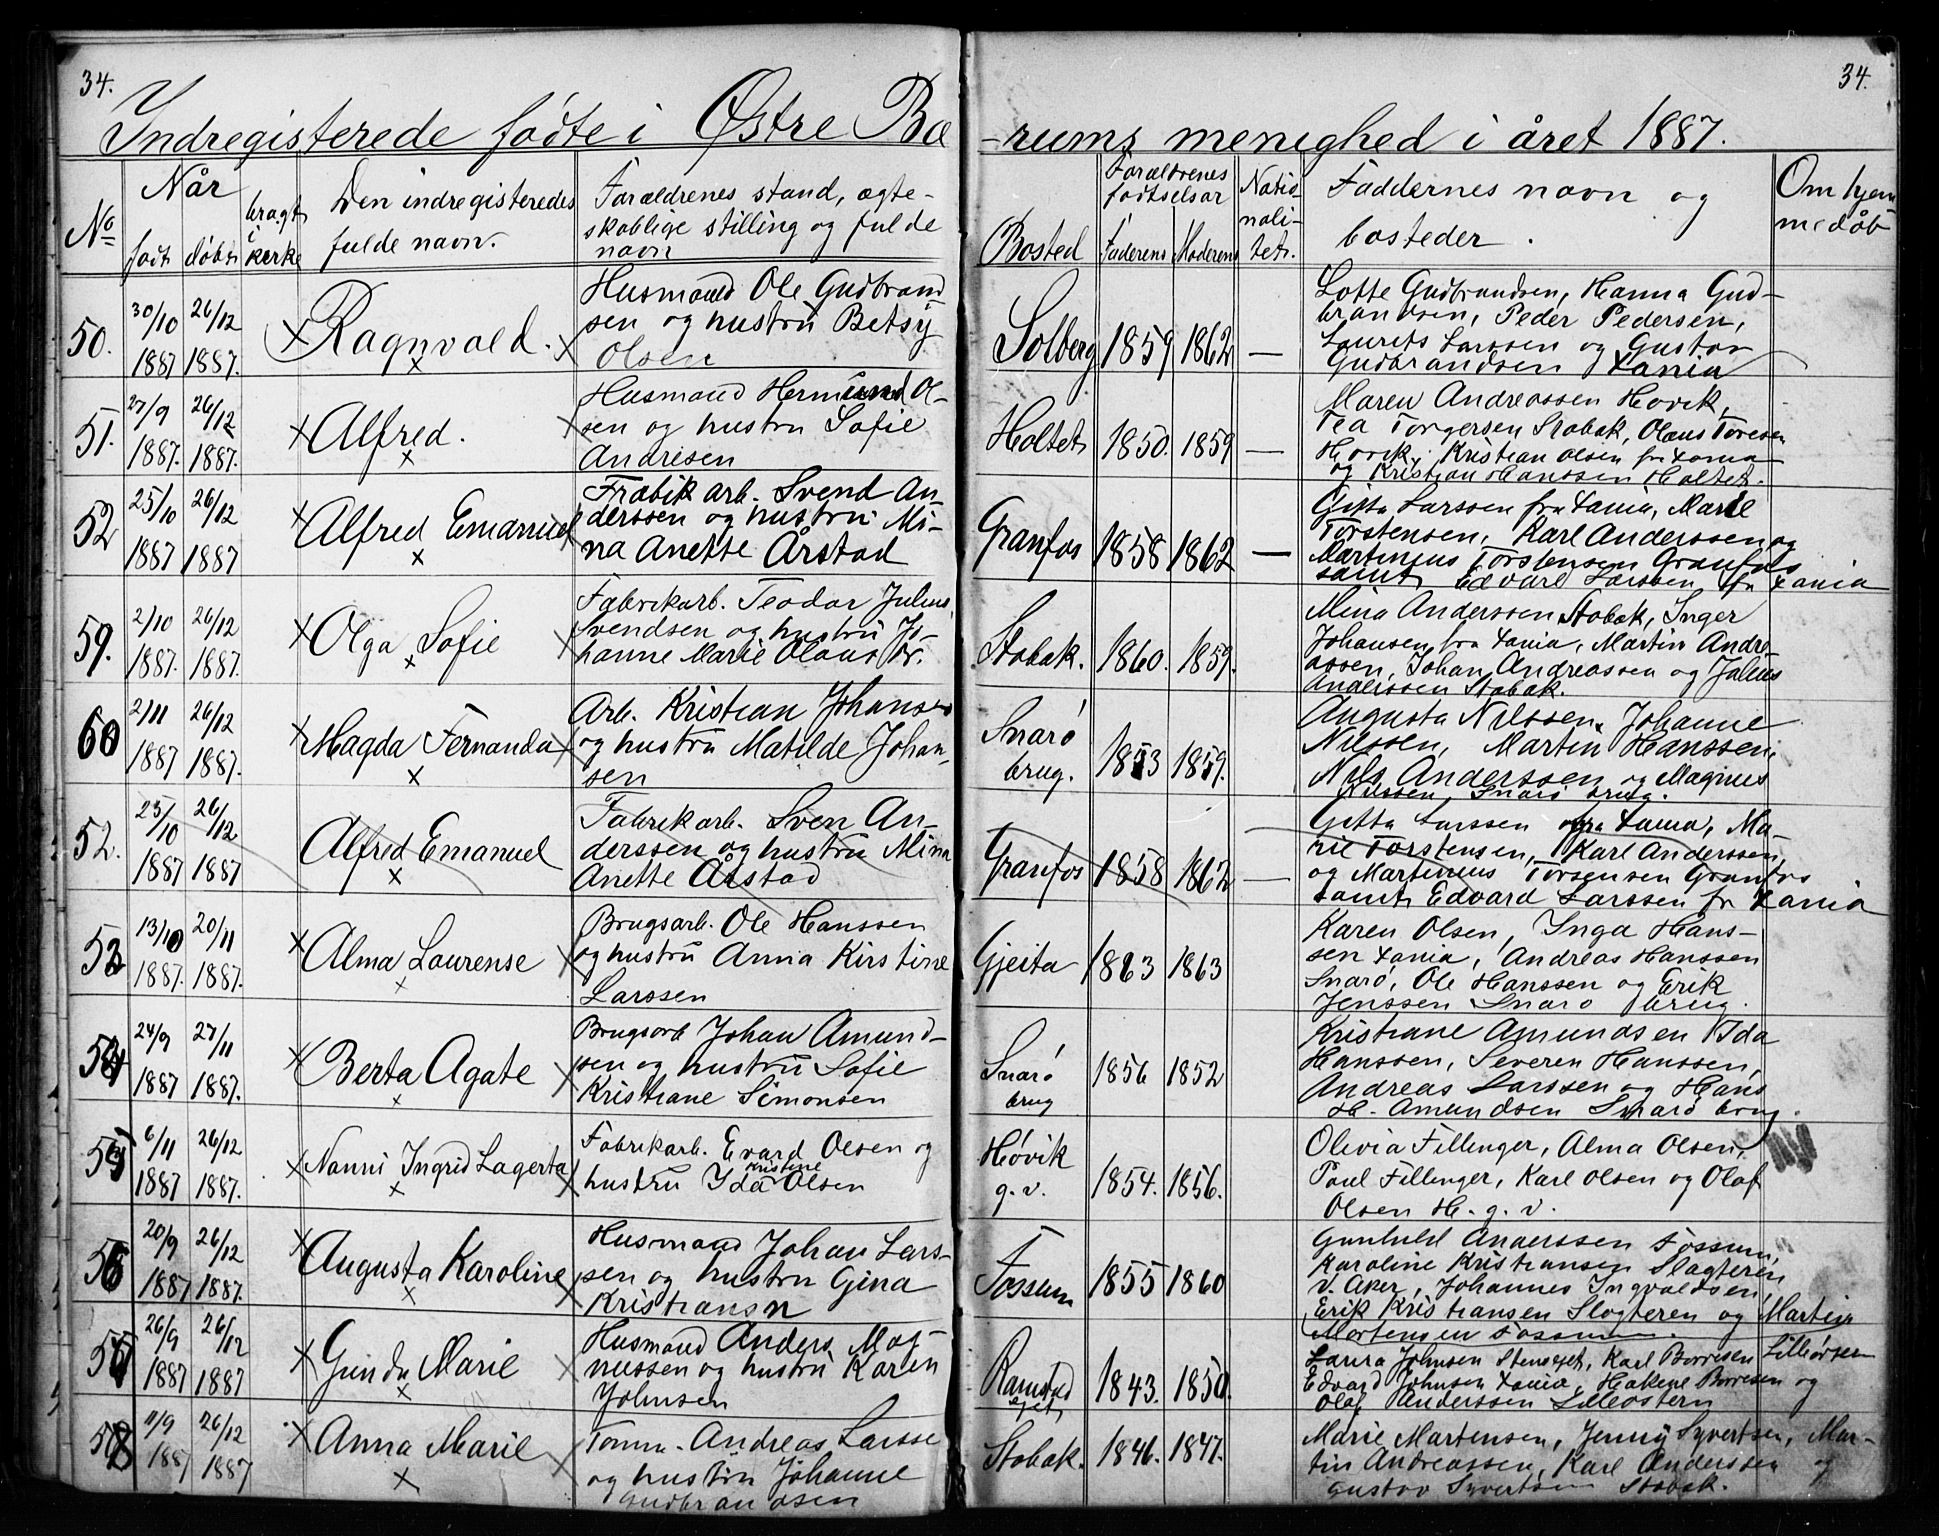 34.
34.
Indregisterede fødte i Østre Bæ-rums menighed i året 1887.
No
Når
født
døbt
bragt i kirke
Den indregisteredes
fulde navn.
Forældrenes stand, ægte-
skablige stilling og fulde
navn
Bosted
Forældrenes
fødselsår
Faderens
Moderens
Natio-
nali-
tet.
Faddernes navn og
bosteder.
Om hjem
medøb
50.
30/10 26/12
1887 1887.
Ragnvald.
Husmand Ole Gudbrand-
sen og hustru Betsy
Olsen
Solberg 1859 1862 —
Lotte Gudbrandsen, Hanna Gud-
brandsen, Peder Pedersen,
Laurits Larssen og Gustav
Gudbrandsen Xania
51.
27/9 26/12
1887. 1887.
Alfred.
Husmand Hermund Ol-
sen og hustru Sofie
Andrisen
Holtet 1850. 1859 —
Maren Andreassen Høvik,
Tea Torgersen Stabæk, Olaus Toresen
Høvik, Kristian Olsen fra Xania
og Kristian Hanssen Holtet.
52
25/10 26/12
1887 1887
Alfred Emanuel
Frabik arb. Svend An-
derssen og hustru Mi-
na Anette Årstad
Granfos 1858 1862 —
Gitta Larssen fra Xania, Marie
Torstensen, Karl Anderssen og
Martinius Torstensen Granfos
samt Edvard Larssen fr Xania
59.
2/10 26/12
1887. 1887
Olga Sofie
Fabrikarb. Teodor Julius
Svendsen og hustru Jo-
hanne Marie Olaus Dr.
Stabæk. 1860. 1859.
Mina Anderssen Stabæk, Inger
Johansen fra Xania, Martin Andre-
assen, Johan Andreassen og Julius
Andrissen Stabæk.
60
2/11 26/12
1887 1887.
Magda Fernanda
Arb. Kristian Johansen
og hustru Matilde Johan-
sen
Snarø
brug. 1853 1859.
Augusta Nilssen, Johanne
Nilssen, Martin Hanssen,
Nils Anderssen og Magnus
Nilssen, Snarø brug.
52.
25/10 26/12
1887 1887
Alfred Emanuel
Fabrikarb. Sven An-
derssen og hustru Mina
Anette Årstad
Granfos 1858 1862 —
Gitta Larssen fra Xania, Ma-
rie Torstensen, Karl Anderssen,
og Martinius Torsensen Granfos
samt Edvard Larssen fr Xania
53
13/10 20/11
1887. 1887.
Alma Laurense
Brugsarb. Ole Hanssen
og hustru Anna Kirstine
Larssen
Gjeita 1863 1863
Karen Olsen, Inga Hans-
sen Xania, Andreas Hanssen
Snarø, Ole Hanssen og Erik
Jenssen Snarø brug.
54
24/9 27/11
1887 1887.
Berta Agate
Brugsarb Johan Amund-
sen og hustru Sofie
Kristiane Simonsen
Snarø
brug 1856 1852
Kristiane Amundsen Ida
Hanssen, Severen Hanssen,
Andreas Larssen og Hans
H. Amundsen Snarø brug.
55
6/11 26/12
1887 1887.
Nanni Ingrid Lagerta
Fabrikarb. Evard Olsen og
hustru Ida Kristine Olsen
Høvik
g. v. 1854. 1856.
Olivia Fillinger, Alma Olsen,
Paul Fillinger, Karl Olsen og Olaf
Olsen H. g. v.
56
20/9 26/12
1887 1887.
Augusta Karoline
Husmand Johan Lars-
sen og hustru Gina
Kristiansn
Fossum 1855 1860
Gunhild Anderssen Fossum,
Karoline Kristiansen Slagteren
V. Aker, Johannes Ingvaldsen,
Erik Kristiansen Slagteren og Martin
Mortensen Fossum.
57
26/9 26/12
1887 1887
Gunda Marie
Husmand Anders Mag-
nussen og hustru Karen
Johnsen
Ramstad
ejet 1843. 1850.
Laura Johnsen Stensejet, Karl Borresen Lilleøstern
Edvard Johnsen Xania, Hakene Borresen og
Olaf Anderssen Lilleøstern
58
11/9 26/12
1887 1887
Anna Marie
Tømm. Andreas Larsse
og hustru Johanne
Gudbrandsen
Stabæk. 1846. 1847.
Marie Martensen, Jenny Syvertsen, Mar-
tin Andreassen, Karl Anderssen og
Gustav Syvertsen Stabæk.